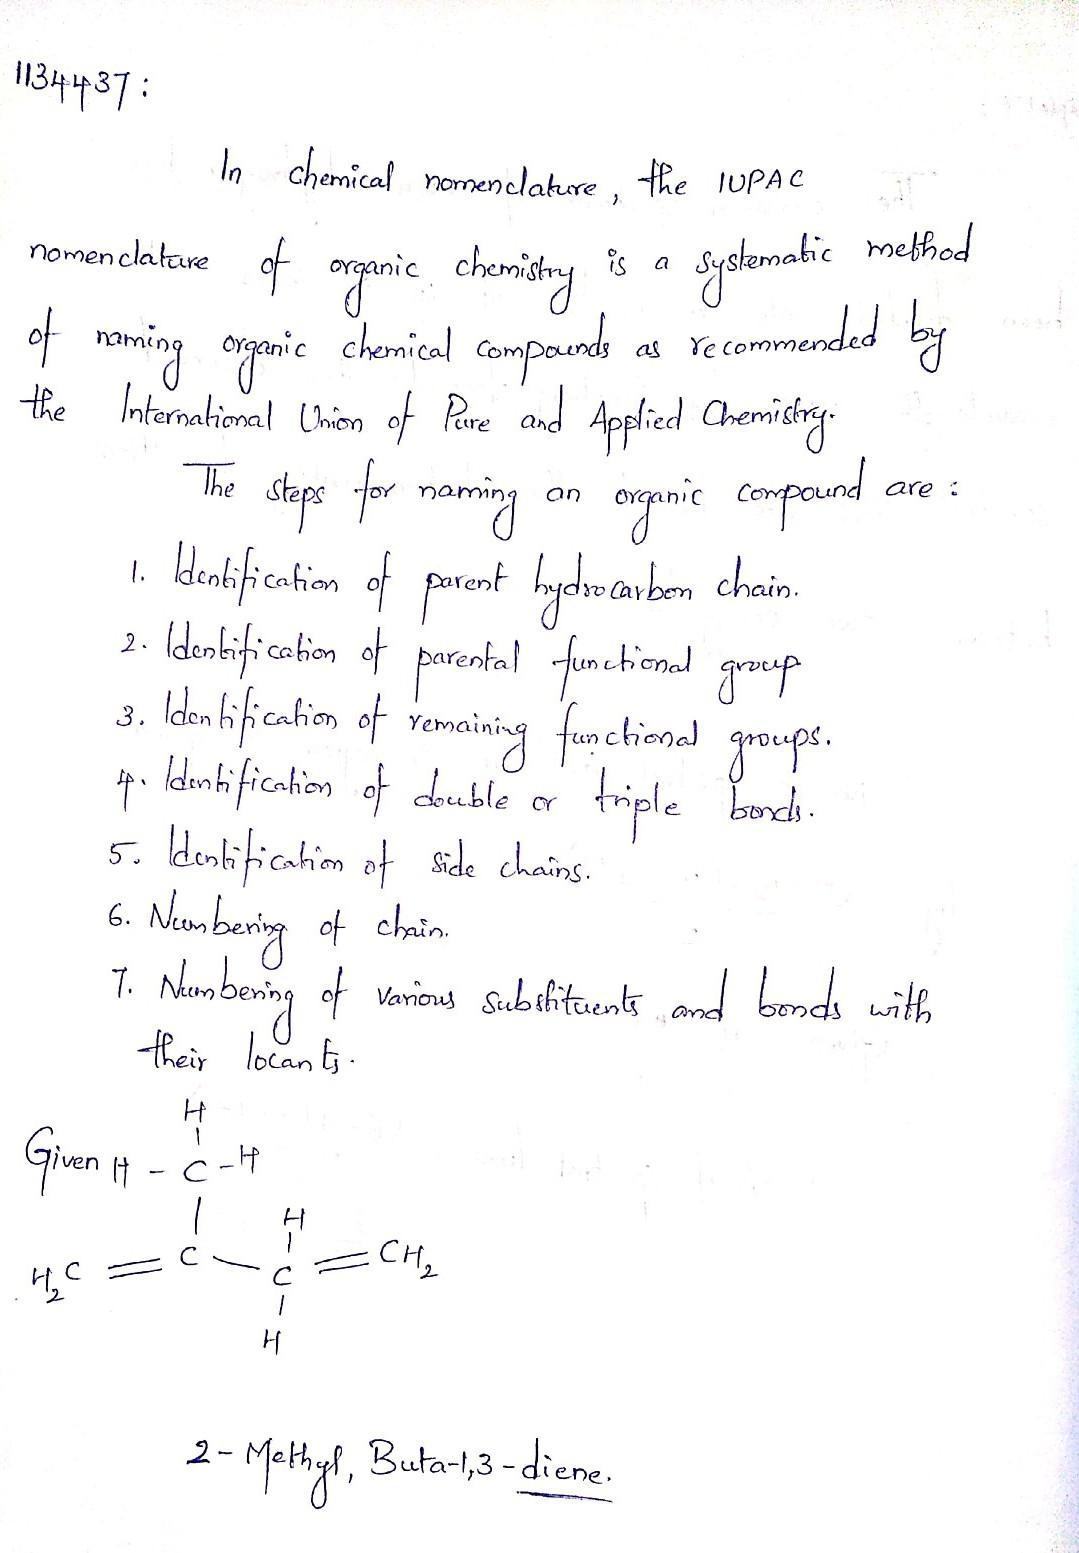 1134437:
In chemical nomenclature, the IUPAC
nomenclature of organic chemistry is a systematic method
of naming organic chemical compounds as recommended by
the International Union of Pure and Applied Chemistry.
The steps for naming an organic compound are :
1. Identification of parent hydrocarbon chain.
2. Identification of parental functional group
3. Identification of remaining functional groups.
4. Identification of double or triple bonds.
5. Identification of side chains.
6. Numbering of chain.
7. Numbering of various substituents and bonds with
their locants.
H
Given H - C - H
H
H₂C = C - C = CH₂
H
2 - Methyl, Buta-1,3 - diene.